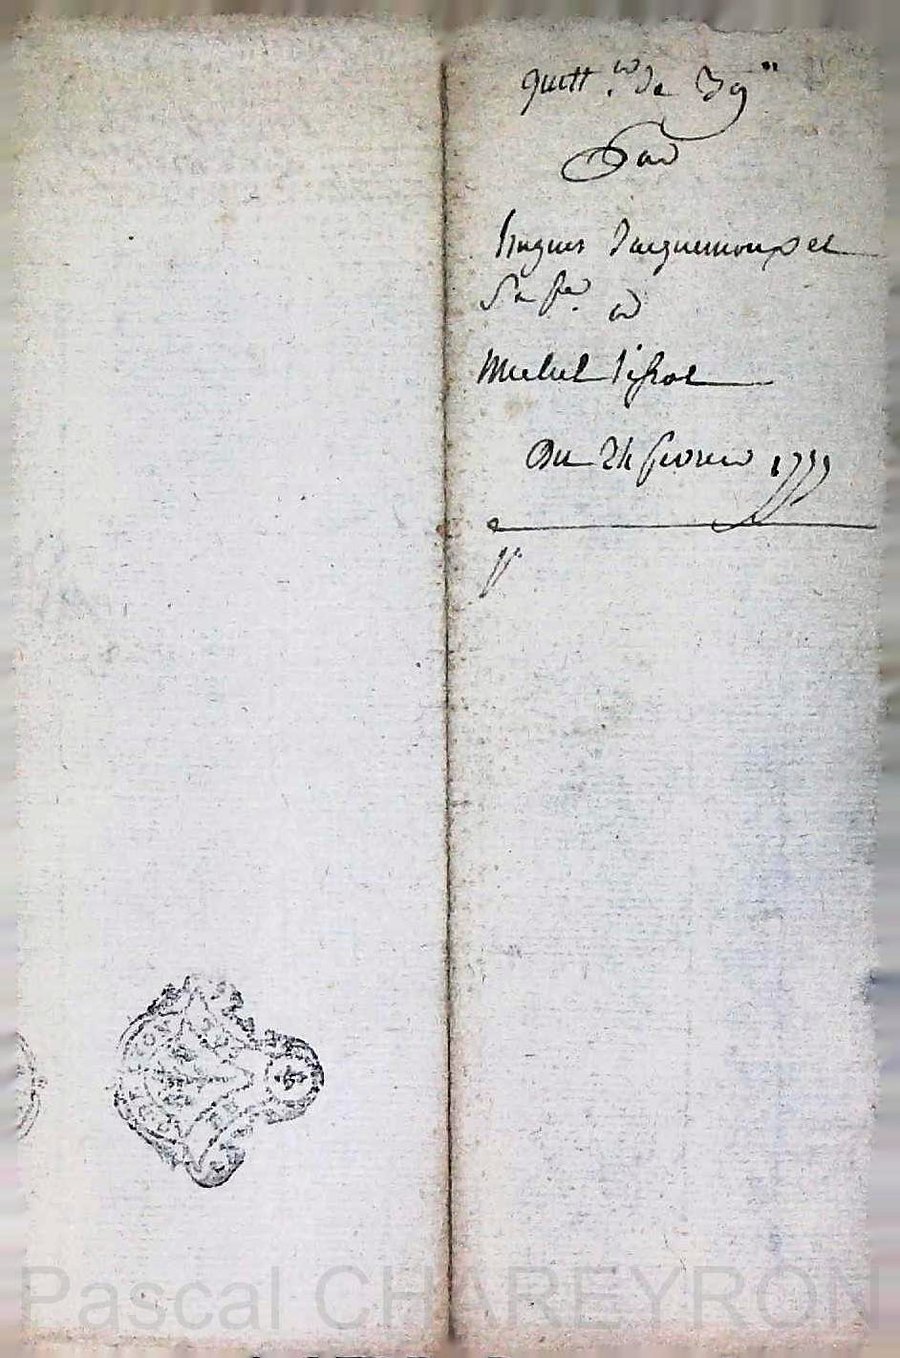 quitt.ce de 39"
Par
hugues Jacquemond et
Sa fe. a
Michel
Du 24 fevrier 1779
Pascal CHAREYRON